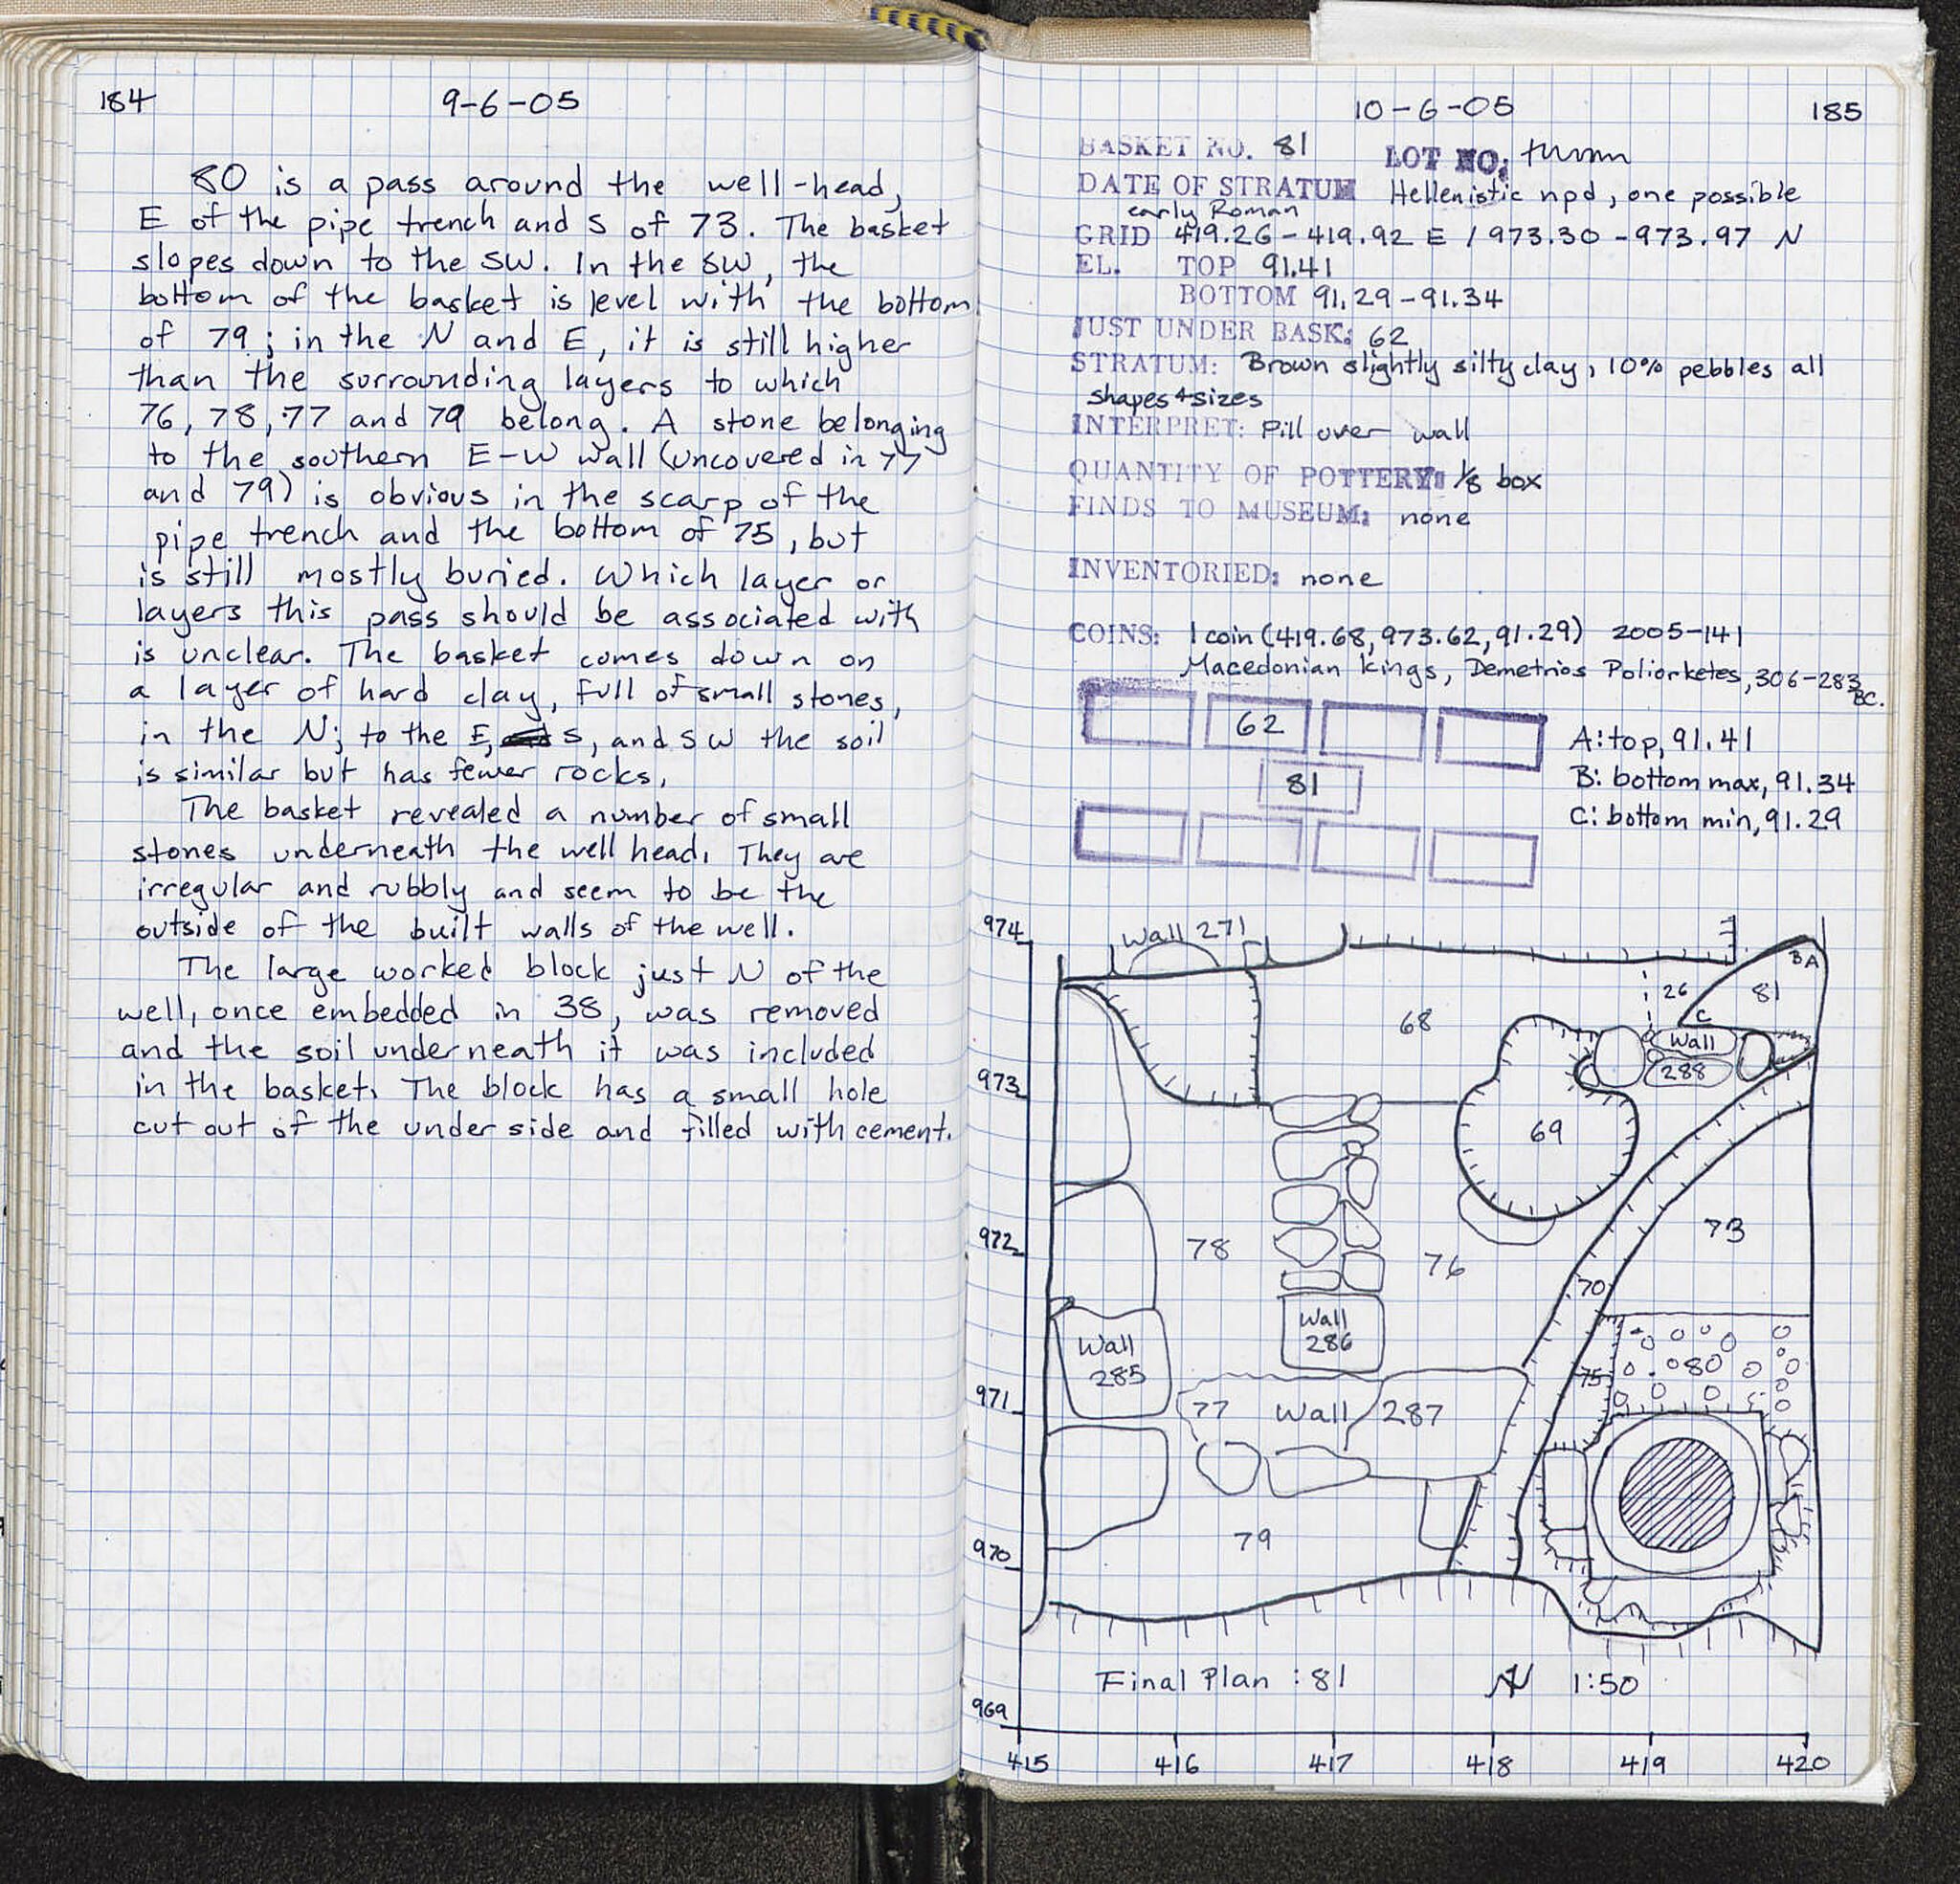 184
9-6-05
80 is a pass around the well-head,
E of the pipe trench and S of 73. The basket
slopes down to the SW. In the SW, the
bottom of the basket is level with the bottom
of 79; in the N and E, it is still higher
than the surrounding layers to which
76, 78, 77 and 79 belong. A stone belonging
to the southern E-W wall (uncovered in 77
and 79) is obvious in the scarp of the
pipe trench and the bottom of 75, but
is still mostly buried. Which layer or
layers this pass should be associated with
is unclear. The basket comes down on
a layer of hard clay, full of small stones,
in the N; to the E, S, and SW the soil
is similar but has fewer rocks.
The basket revealed a number of small
stones underneath the well head. They are
irregular and rubbly and seem to be the
outside of the built walls of the well.
The large worked block just N of the
well, once embedded in 38, was removed
and the soil underneath it was included
in the basket. The block has a small hole
cut out of the under side and filled with cement.
10-6-05
185
BASKET NO. 81 LOT NO:
DATE OF STRATUM Hellenistic npd, one possible
early Roman
GRID 419.26-419.92 E / 973.30-973.97 N
EL. TOP 91.41
BOTTOM 91.29-91.34
JUST UNDER BASK: 62
STRATUM: Brown slightly silty clay, 10% pebbles all
shapes + sizes
INTERPRET: Fill over wall
QUANTITY OF POTTERY: 1/8 box
FINDS TO MUSEUM: none
INVENTORIED: none
COINS: 1 coin (419.68, 973.62, 91.29) 2005-141
Macedonian kings, Demetrios Poliorketes, 306-283
BC.
62
81
A: top, 91.41
B: bottom max, 91.34
C: bottom min, 91.29
974
Wall 271
B A
26
81
68
C
Wall
288
973
69
73
972
78
76
70
Wall
286
Wall
285
80
75
971
77
Wall 287
970
79
Final Plan : 81
N 1:50
969
415 416 417 418 419 420